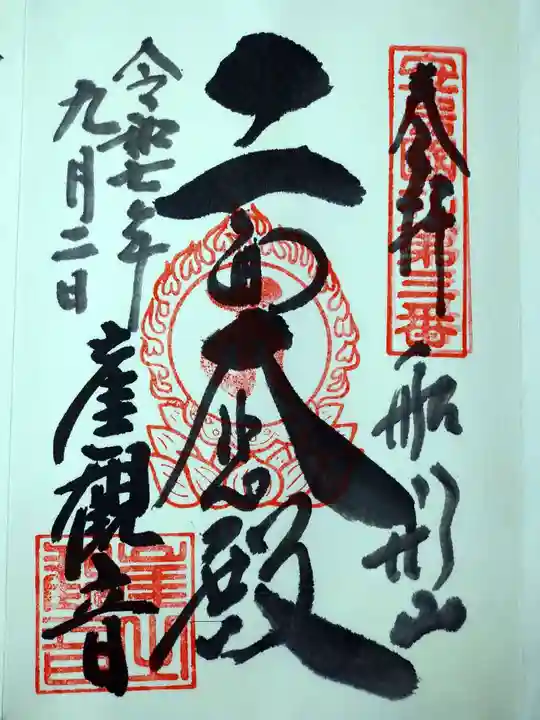 奉拝
第三番
船形山
十一面大悲殿
令和七年
九月二日
崖観音